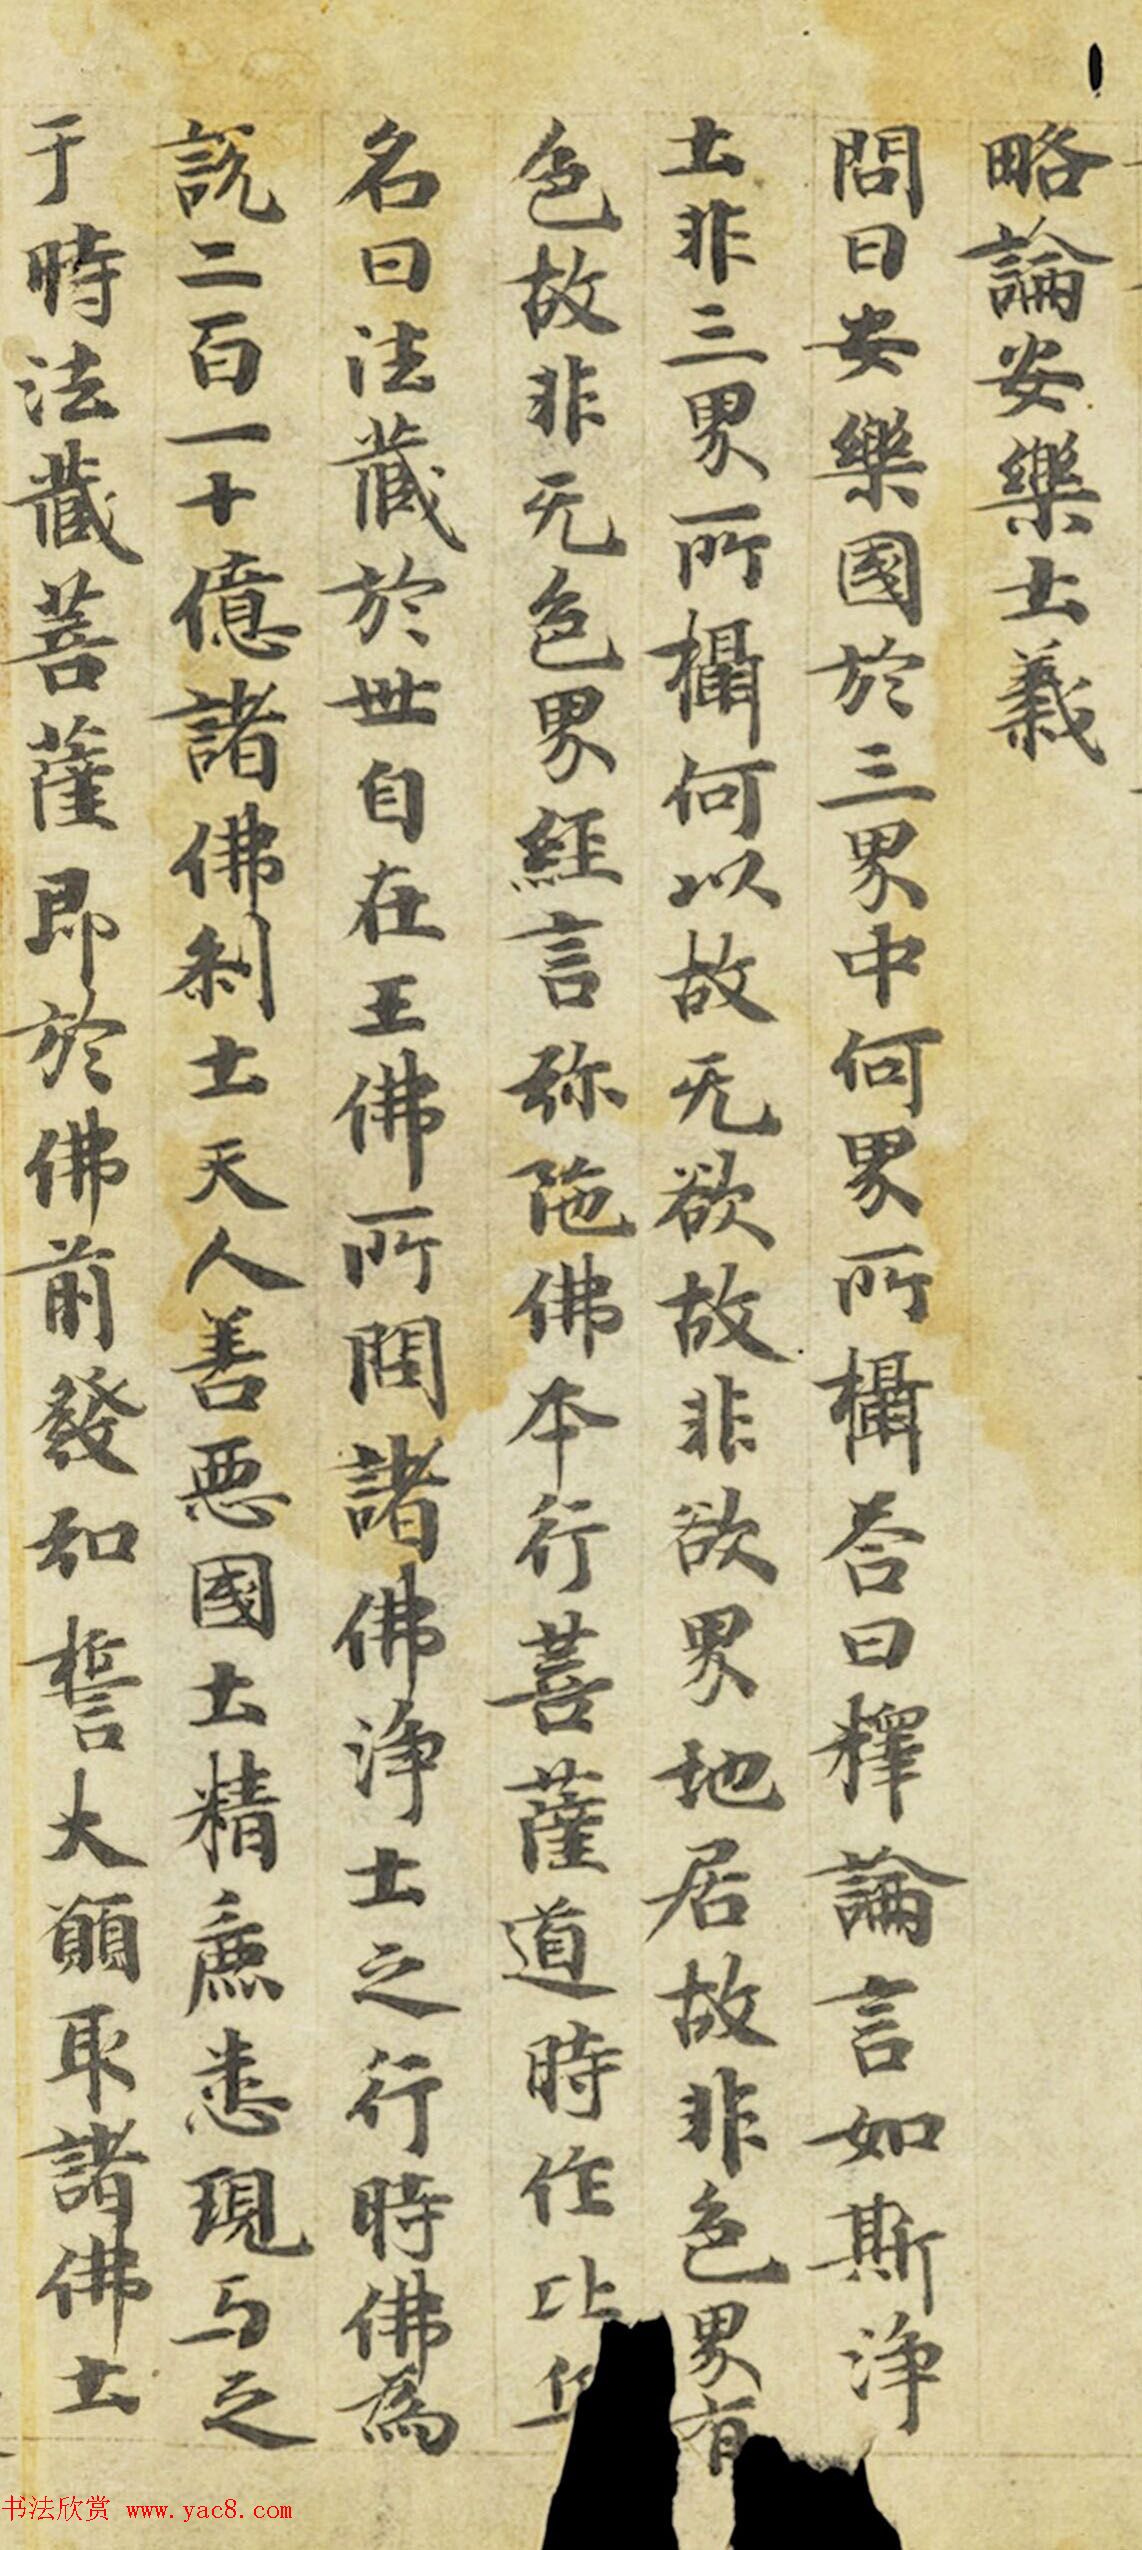 略論安樂土義
問曰安樂國於三界中何界所攝荅曰釋論言如斯淨
土非三界所攝何以故无欲故非欲界地居故非色界有
色故非无色界經言弥陁佛本行菩薩道時作比丘
名曰法藏於世自在王佛所問諸佛淨土之行時佛為
說二百一十億諸佛刹土天人善惡國土精麁悉現与之
于時法藏菩薩即於佛前發和誓大願取諸佛土
书法欣赏 www.yac8.com